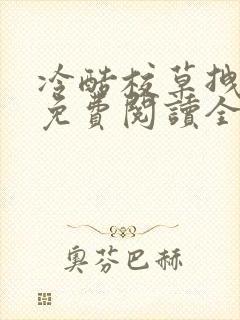 冷酷校草拽
免費閱讀全
奧芬巴赫